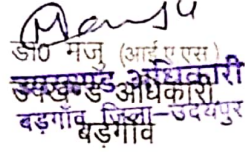 डॉ0 मंजु (आई.ए.एस.)
उपखण्ड अधिकारी
उपखण्ड अधिकारी
बड़गाँव जिला-उदयपुर
बड़गाँव